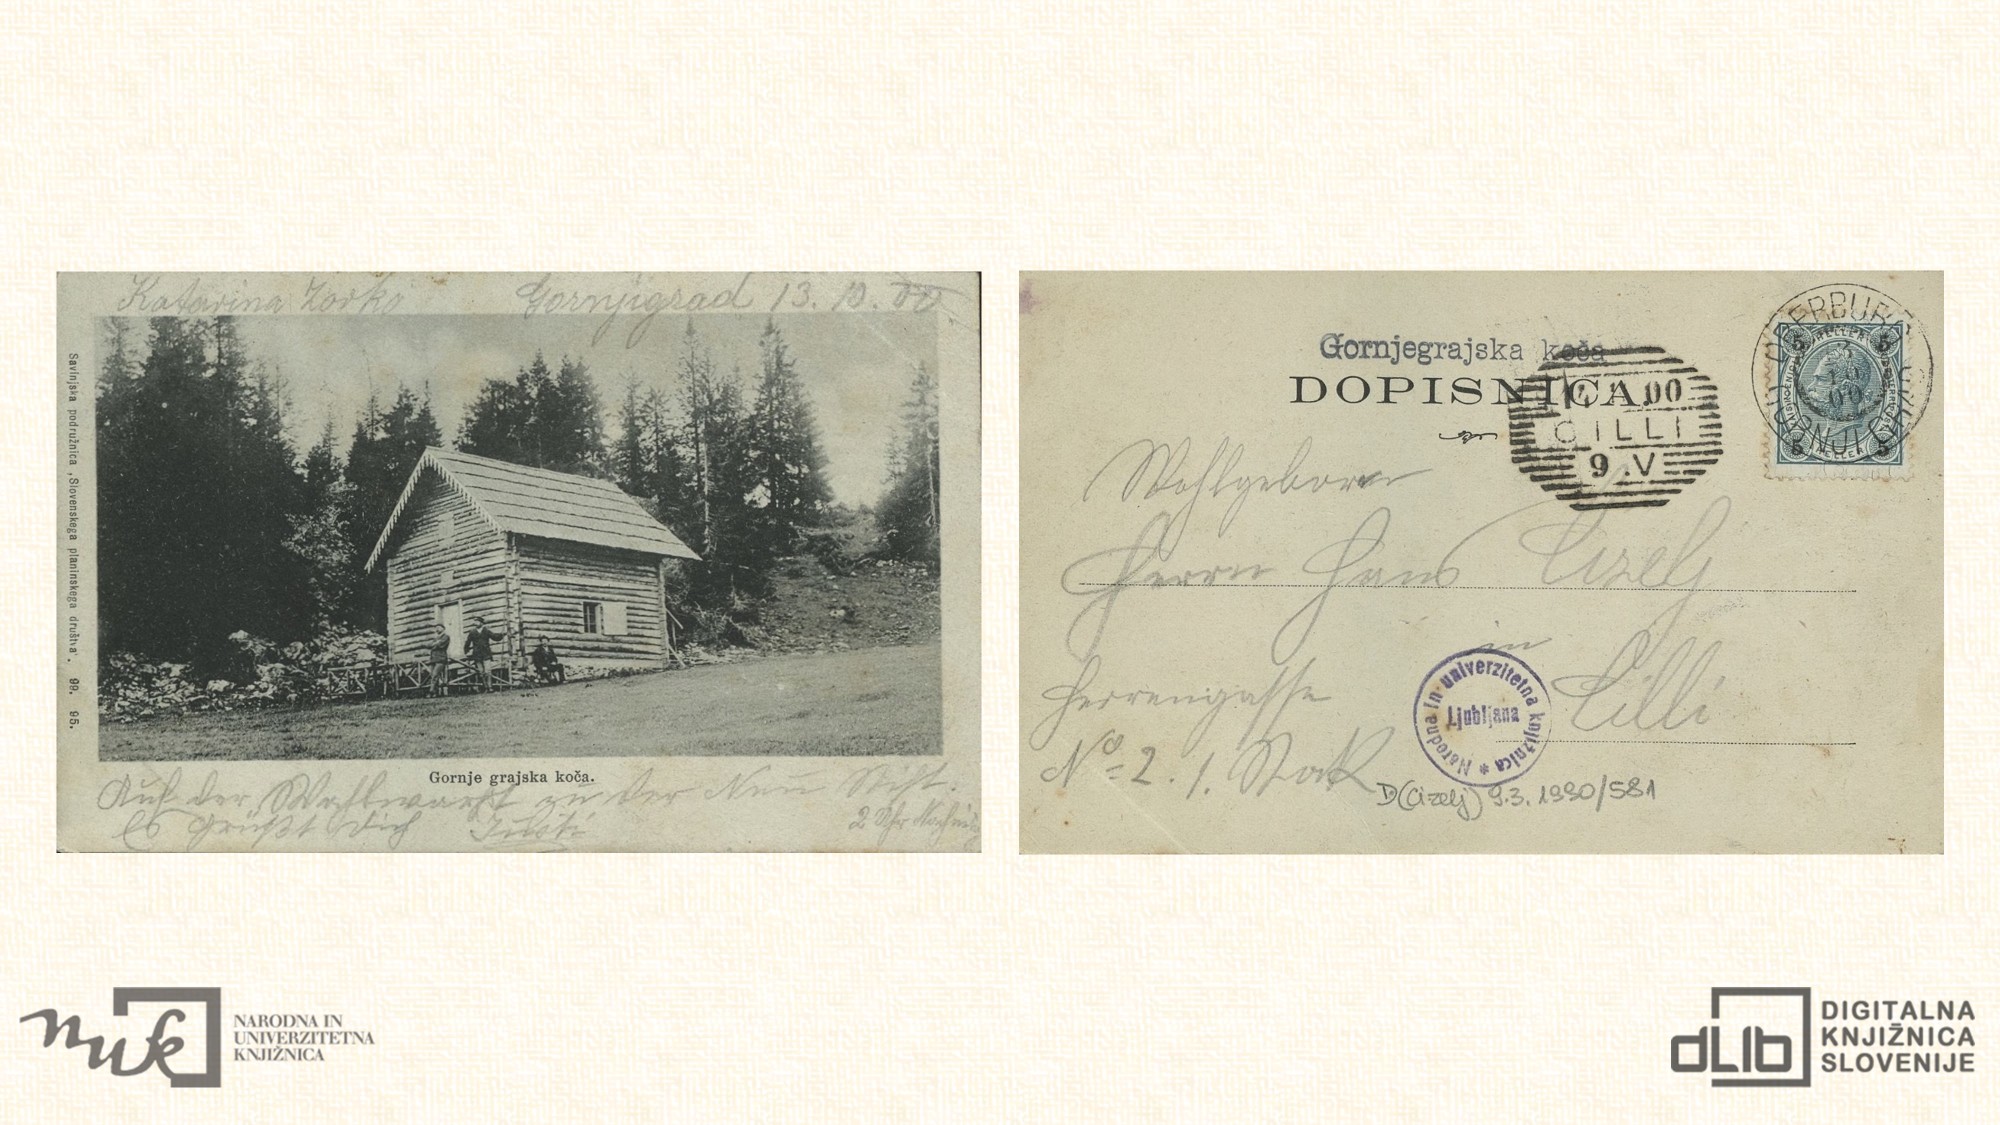 Katarina Zorko Gornjigrad 13. 10. 00
Savinjska podružnica „Slovenskega planinskega društva“. 99. 95.
Gornje grajska koča.
Auf der zu der Neu Stift.
Es grüßt Dich
2 Uhr
Gornjegrajska koča
DOPISNICA
00
CILLI
9. V
OBERBURG
GORNJI GRAD
5 HELLER 5
5 HELLER 5
Wohlgeboren
Herrn Hans Cizelj
in
Herrengasse Cilli
No 2. 1. Stock
Narodna in univerzitetna knjižnica *
Ljubljana
D (Cizelj) 9.3.1990/581
nuk
NARODNA IN
UNIVERZITETNA
KNJIŽNICA
dLib
DIGITALNA
KNJIŽNICA
SLOVENIJE